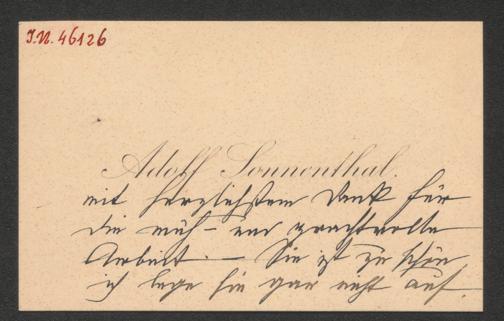 J.N. 46126
Adolf Sonnenthal.
mit herzlichstem Dank für
die müh- und prachtvolle
Arbeit. – Sie ist zu schön
ich lege sie gar nicht auf.